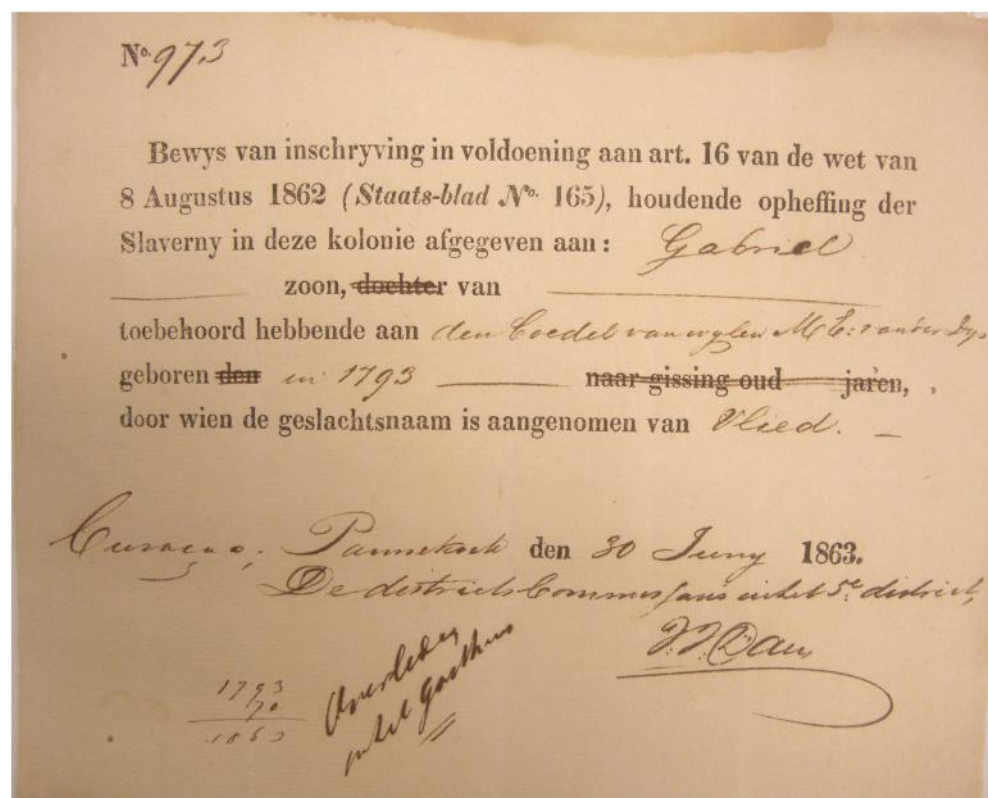 No. 973
Bewys van inschryving in voldoening aan art. 16 van de wet van
8 Augustus 1862 (Staats-blad No. 165), houdende opheffing der
Slaverny in deze kolonie afgegeven aan: Gabriel
zoon, dochter van
toebehoord hebbende aan den boedel van wylen M E: van der Dys
geboren den in 1793 naar gissing oud jaren,
door wien de geslachtsnaam is aangenomen van Vlied.
Curaçao, Pannekoek den 30 Juny 1863.
De districts Commissaris in het 5e district,
J. J. Dam
Overleden
in het Gasthuis
1793
70
1863